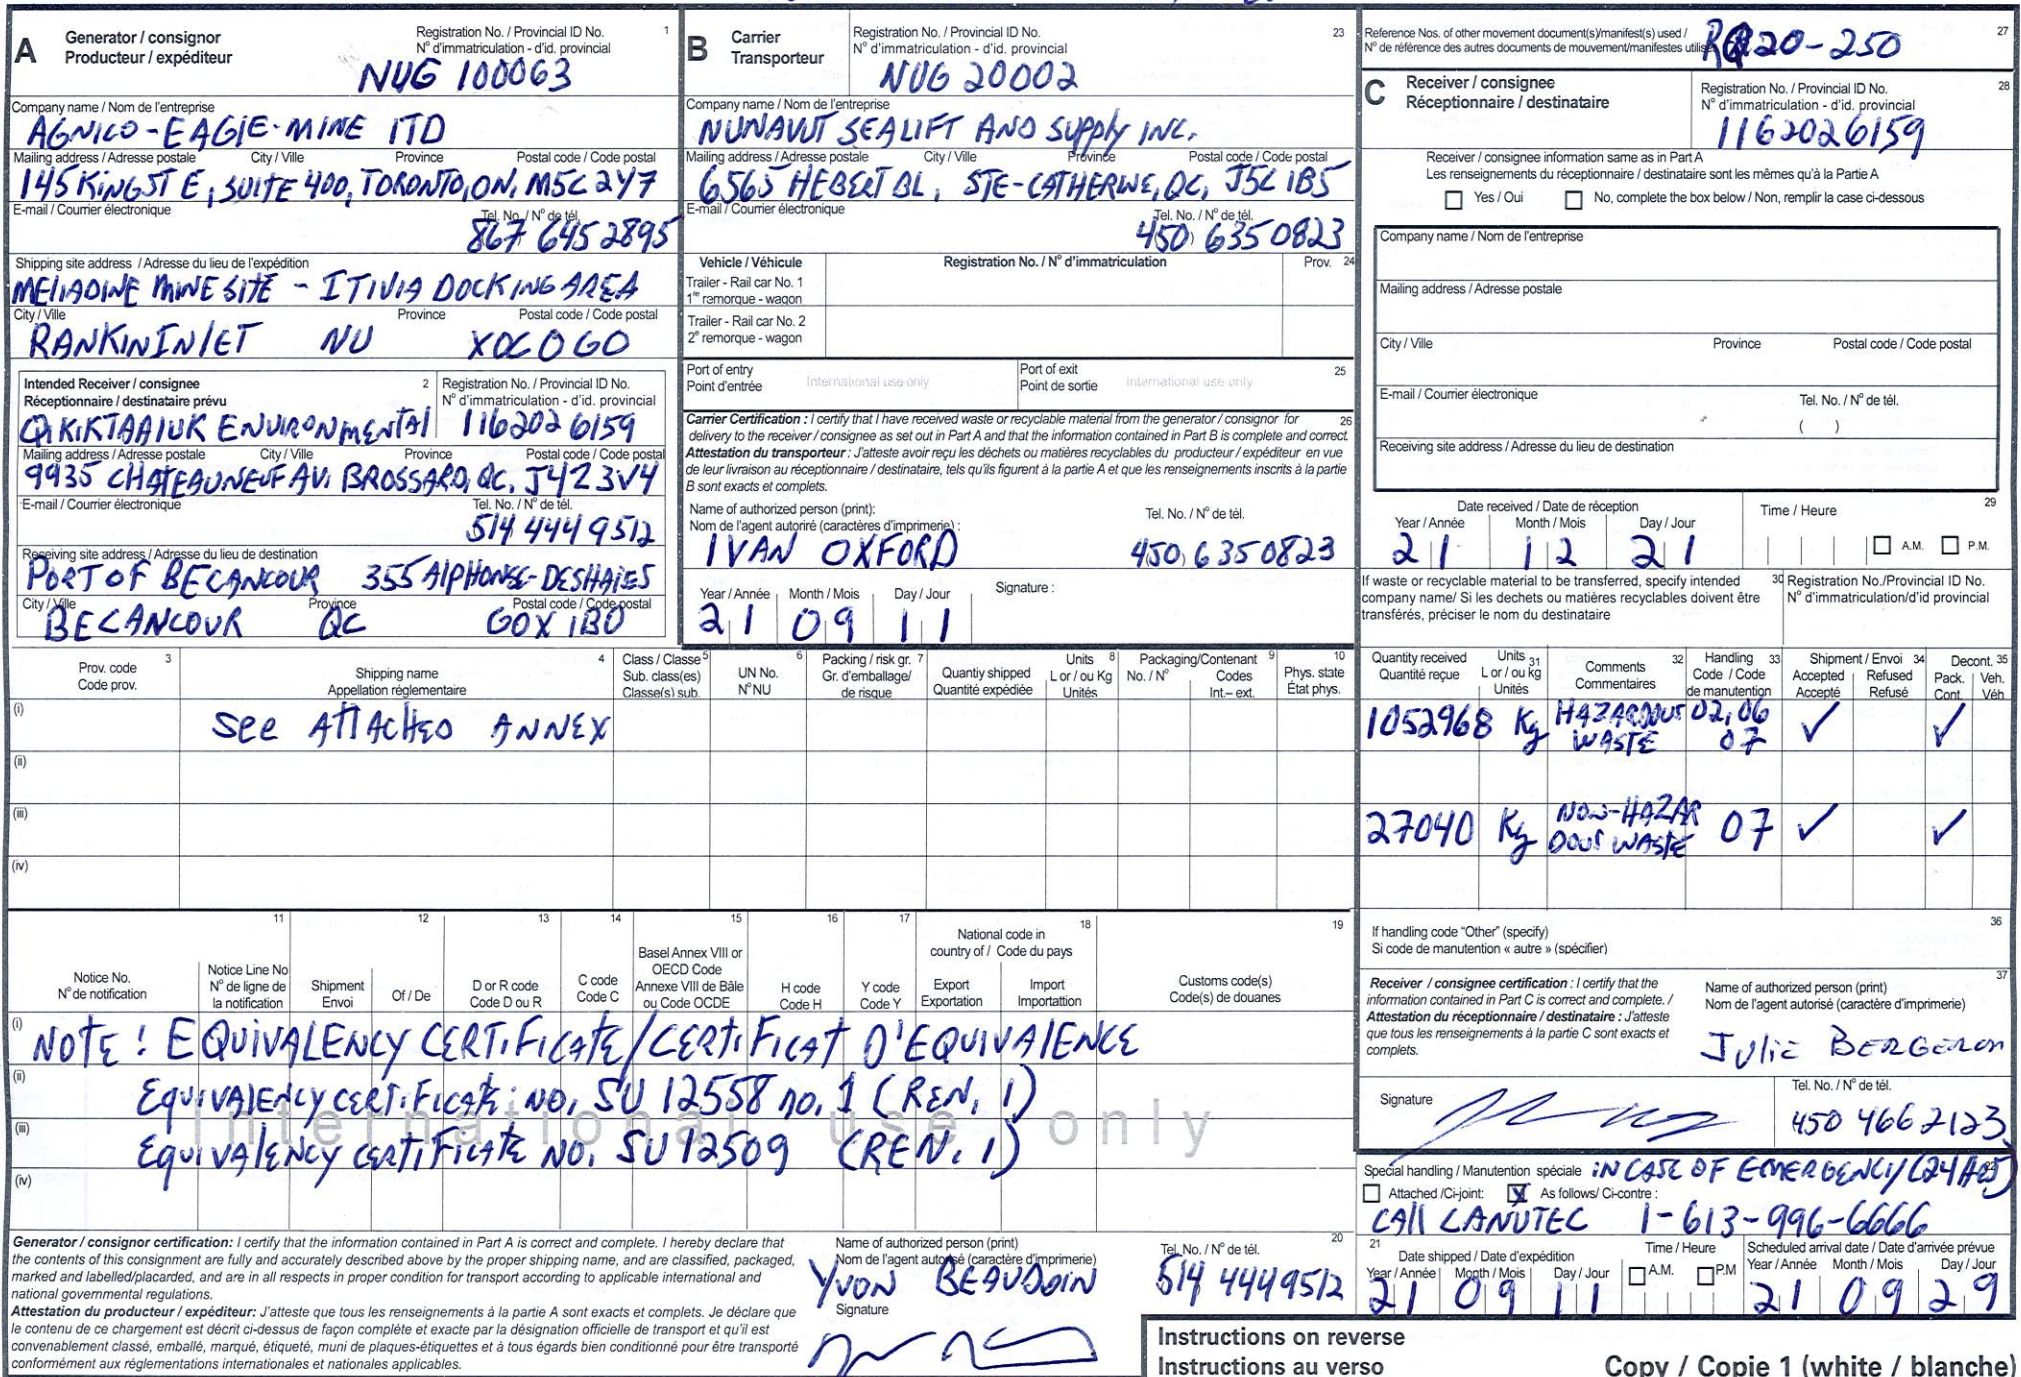 A
Generator / consignor
Producteur / expéditeur
Registration No. / Provincial ID No. 1
N° d'immatriculation - d'id. provincial
NUG 100063
Company name / Nom de l'entreprise
AGNICO-EAGlE-MINE lTD
Mailing address / Adresse postale City / Ville Province Postal code / Code postal
145 KiNG ST E, SUITE 400, TORONTO, ON, M5C 2Y7
E-mail / Courrier électronique Tel. No. / N° de tél.
867 645 2895
Shipping site address / Adresse du lieu de l'expédition
MELIADINE MINE SITE - ITIVIA DOCKING AREA
City / Ville Province Postal code / Code postal
RANKIN INlET NU X0C 0G0
Intended Receiver / consignee 2
Réceptionnaire / destinataire prévu
Registration No. / Provincial ID No.
N° d'immatriculation - d'id. provincial
QIKIKTAAlUK ENVIRONMENTAl 1162026159
Mailing address / Adresse postale City / Ville Province Postal code / Code postal
9935 CHATEAUNEUF AV. BROSSARD, QC. J4Z 3V4
E-mail / Courrier électronique Tel. No. / N° de tél.
514 444 9512
Receiving site address / Adresse du lieu de destination
PORT OF BECANCOUR 355 AlPHONSE-DESHAIES
City / Ville Province Postal code / Code postal
BECANCOUR QC G0X 1B0
B
Carrier
Transporteur
Registration No. / Provincial ID No. 23
N° d'immatriculation - d'id. provincial
NUG 20002
Company name / Nom de l'entreprise
NUNAVUT SEALIFT AND Supply INC.
Mailing address / Adresse postale City / Ville Province Postal code / Code postal
6565 HEBERT BL, STE-CATHERINE, QC, J5C 1B5
E-mail / Courrier électronique Tel. No. / N° de tél.
450 635 0823
Vehicle / Véhicule Registration No. / N° d'immatriculation Prov. 24
Trailer - Rail car No. 1
1re remorque - wagon
Trailer - Rail car No. 2
2e remorque - wagon
Port of entry
Point d'entrée International use only
Port of exit 25
Point de sortie International use only
Carrier Certification : I certify that I have received waste or recyclable material from the generator / consignor for 26
delivery to the receiver / consignee as set out in Part A and that the information contained in Part B is complete and correct.
Attestation du transporteur : J'atteste avoir reçu les déchets ou matières recyclables du producteur / expéditeur en vue
de leur livraison au réceptionnaire / destinataire, tels qu'ils figurent à la partie A et que les renseignements inscrits à la partie
B sont exacts et complets.
Name of authorized person (print):
Nom de l'agent autoriré (caractères d'imprimerie) :
Tel. No. / N° de tél.
IVAN OXFORD 450 635 0823
Year / Année Month / Mois Day / Jour Signature :
21 09 11
Reference Nos. of other movement document(s)/manifest(s) used / 27
N° de référence des autres documents de mouvement/manifestes utilisés
20-250
C
Receiver / consignee
Réceptionnaire / destinataire
Registration No. / Provincial ID No. 28
N° d'immatriculation - d'id. provincial
1162026159
Receiver / consignee information same as in Part A
Les renseignements du réceptionnaire / destinataire sont les mêmes qu'à la Partie A
Yes / Oui No, complete the box below / Non, remplir la case ci-dessous
Company name / Nom de l'entreprise
Mailing address / Adresse postale
City / Ville Province Postal code / Code postal
E-mail / Courrier électronique Tel. No. / N° de tél.
( )
Receiving site address / Adresse du lieu de destination
Date received / Date de réception Time / Heure 29
Year / Année Month / Mois Day / Jour
21 12 21 A.M. P.M.
If waste or recyclable material to be transferred, specify intended 30
company name/ Si les dechets ou matières recyclables doivent être
transférés, préciser le nom du destinataire
Registration No./Provincial ID No.
N° d'immatriculation/d'id provincial
Prov. code 3
Code prov.
Shipping name 4
Appellation réglementaire
Class / Classe 5
Sub. class(es)
Classe(s) sub.
UN No. 6
N° NU
Packing / risk gr. 7
Gr. d'emballage/
de risque
Quantiy shipped
Quantité expédiée
Units 8
L or / ou Kg
Unités
Packaging/Contenant 9
No. / N° Codes
Int.– ext.
10
Phys. state
État phys.
(i) See ATTACHED ANNEX
(ii)
(iii)
(iv)
Quantity received
Quantité reçue
Units 31
L or / ou kg
Unités
Comments 32
Commentaires
Handling 33
Code / Code
de manutention
Shipment / Envoi 34
Accepted Refused
Accepté Refusé
Decont. 35
Pack. Veh.
Cont. Véh
1052968 Kg HAZARDOUS WASTE 02, 06 07 ✓ ✓
27040 Kg NON-HAZARDOUS WASTE 07 ✓ ✓
Notice No.
N° de notification
11
Notice Line No
N° de ligne de
la notification
12
Shipment
Envoi
Of / De
13
D or R code
Code D ou R
14
C code
Code C
15
Basel Annex VIII or
OECD Code
Annexe VIII de Bâle
ou Code OCDE
16
H code
Code H
17
Y code
Code Y
National code in 18
country of / Code du pays
Export Import
Exportation Importattion
19
Customs code(s)
Code(s) de douanes
(i) NOTE : EQUIVALENCY CERTiFiCATE / CERTiFiCAT D'EQUIVAlENCE
(ii) EquiVALENCY CERTiFiCATE NO. SU 12558 no. 1 (REN. 1)
International use only
(iii) EquiVAlENCY CERTiFiCATE NO. SU 12509 (REN. 1)
(iv)
36
If handling code "Other" (specify)
Si code de manutention « autre » (spécifier)
Receiver / consignee certification : I certify that the 37
information contained in Part C is correct and complete. /
Attestation du réceptionnaire / destinataire : J'atteste
que tous les renseignements à la partie C sont exacts et
complets.
Name of authorized person (print)
Nom de l'agent autorisé (caractère d'imprimerie)
Julie BERGERON
Signature
Tel. No. / N° de tél.
450 466 2123
Special handling / Manutention spéciale iN CASE OF EMERGENCY (24 HRS) 22
Attached /Ci-joint: X As follows/ Ci-contre :
CAll CANUTEC 1-613-996-6666
Generator / consignor certification: I certify that the information contained in Part A is correct and complete. I hereby declare that
the contents of this consignment are fully and accurately described above by the proper shipping name, and are classified, packaged,
marked and labelled/placarded, and are in all respects in proper condition for transport according to applicable international and
national governmental regulations.
Attestation du producteur / expéditeur: J'atteste que tous les renseignements à la partie A sont exacts et complets. Je déclare que
le contenu de ce chargement est décrit ci-dessus de façon complète et exacte par la désignation officielle de transport et qu'il est
convenablement classé, emballé, marqué, étiqueté, muni de plaques-étiquettes et à tous égards bien conditionné pour être transporté
conformément aux réglementations internationales et nationales applicables.
Name of authorized person (print)
Nom de l'agent autorisé (caractère d'imprimerie)
Tel. No. / N° de tél. 20
YVON BEAUDOIN 514 444 9512
Signature
21
Date shipped / Date d'expédition Time / Heure Scheduled arrival date / Date d'arrivée prévue
Year / Année Month / Mois Day / Jour A.M. P.M Year / Année Month / Mois Day / Jour
21 09 11 21 09 29
Instructions on reverse
Instructions au verso
Copy / Copie 1 (white / blanche)